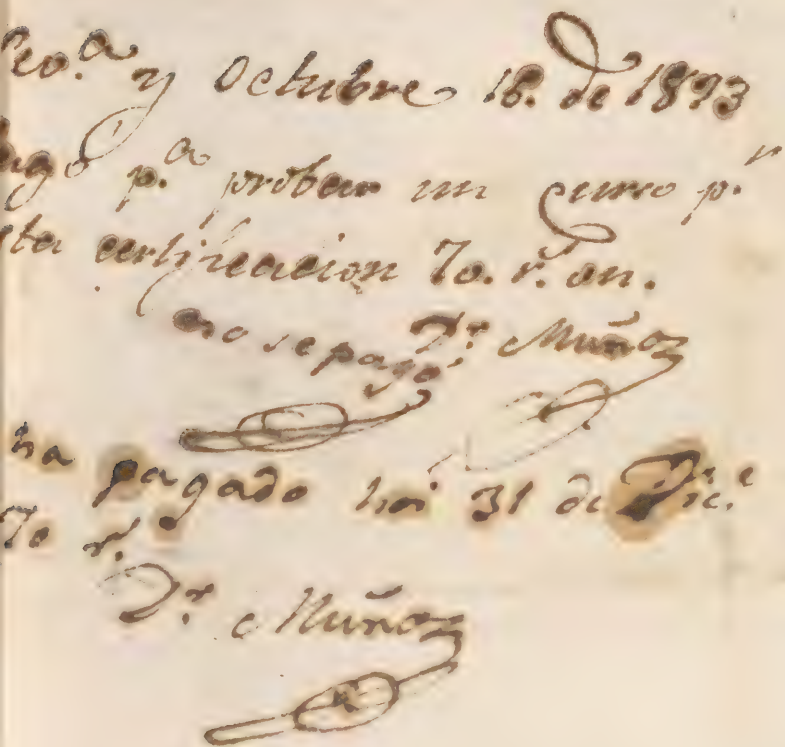 y Octubre 18. de 1893
p.ª probar un curso p.r
certificacion 70. r.s vn.
no se pagó
D.r Muñoz
ha pagado hoi 31 de Dic.e
70 r.s
D.r Muñoz